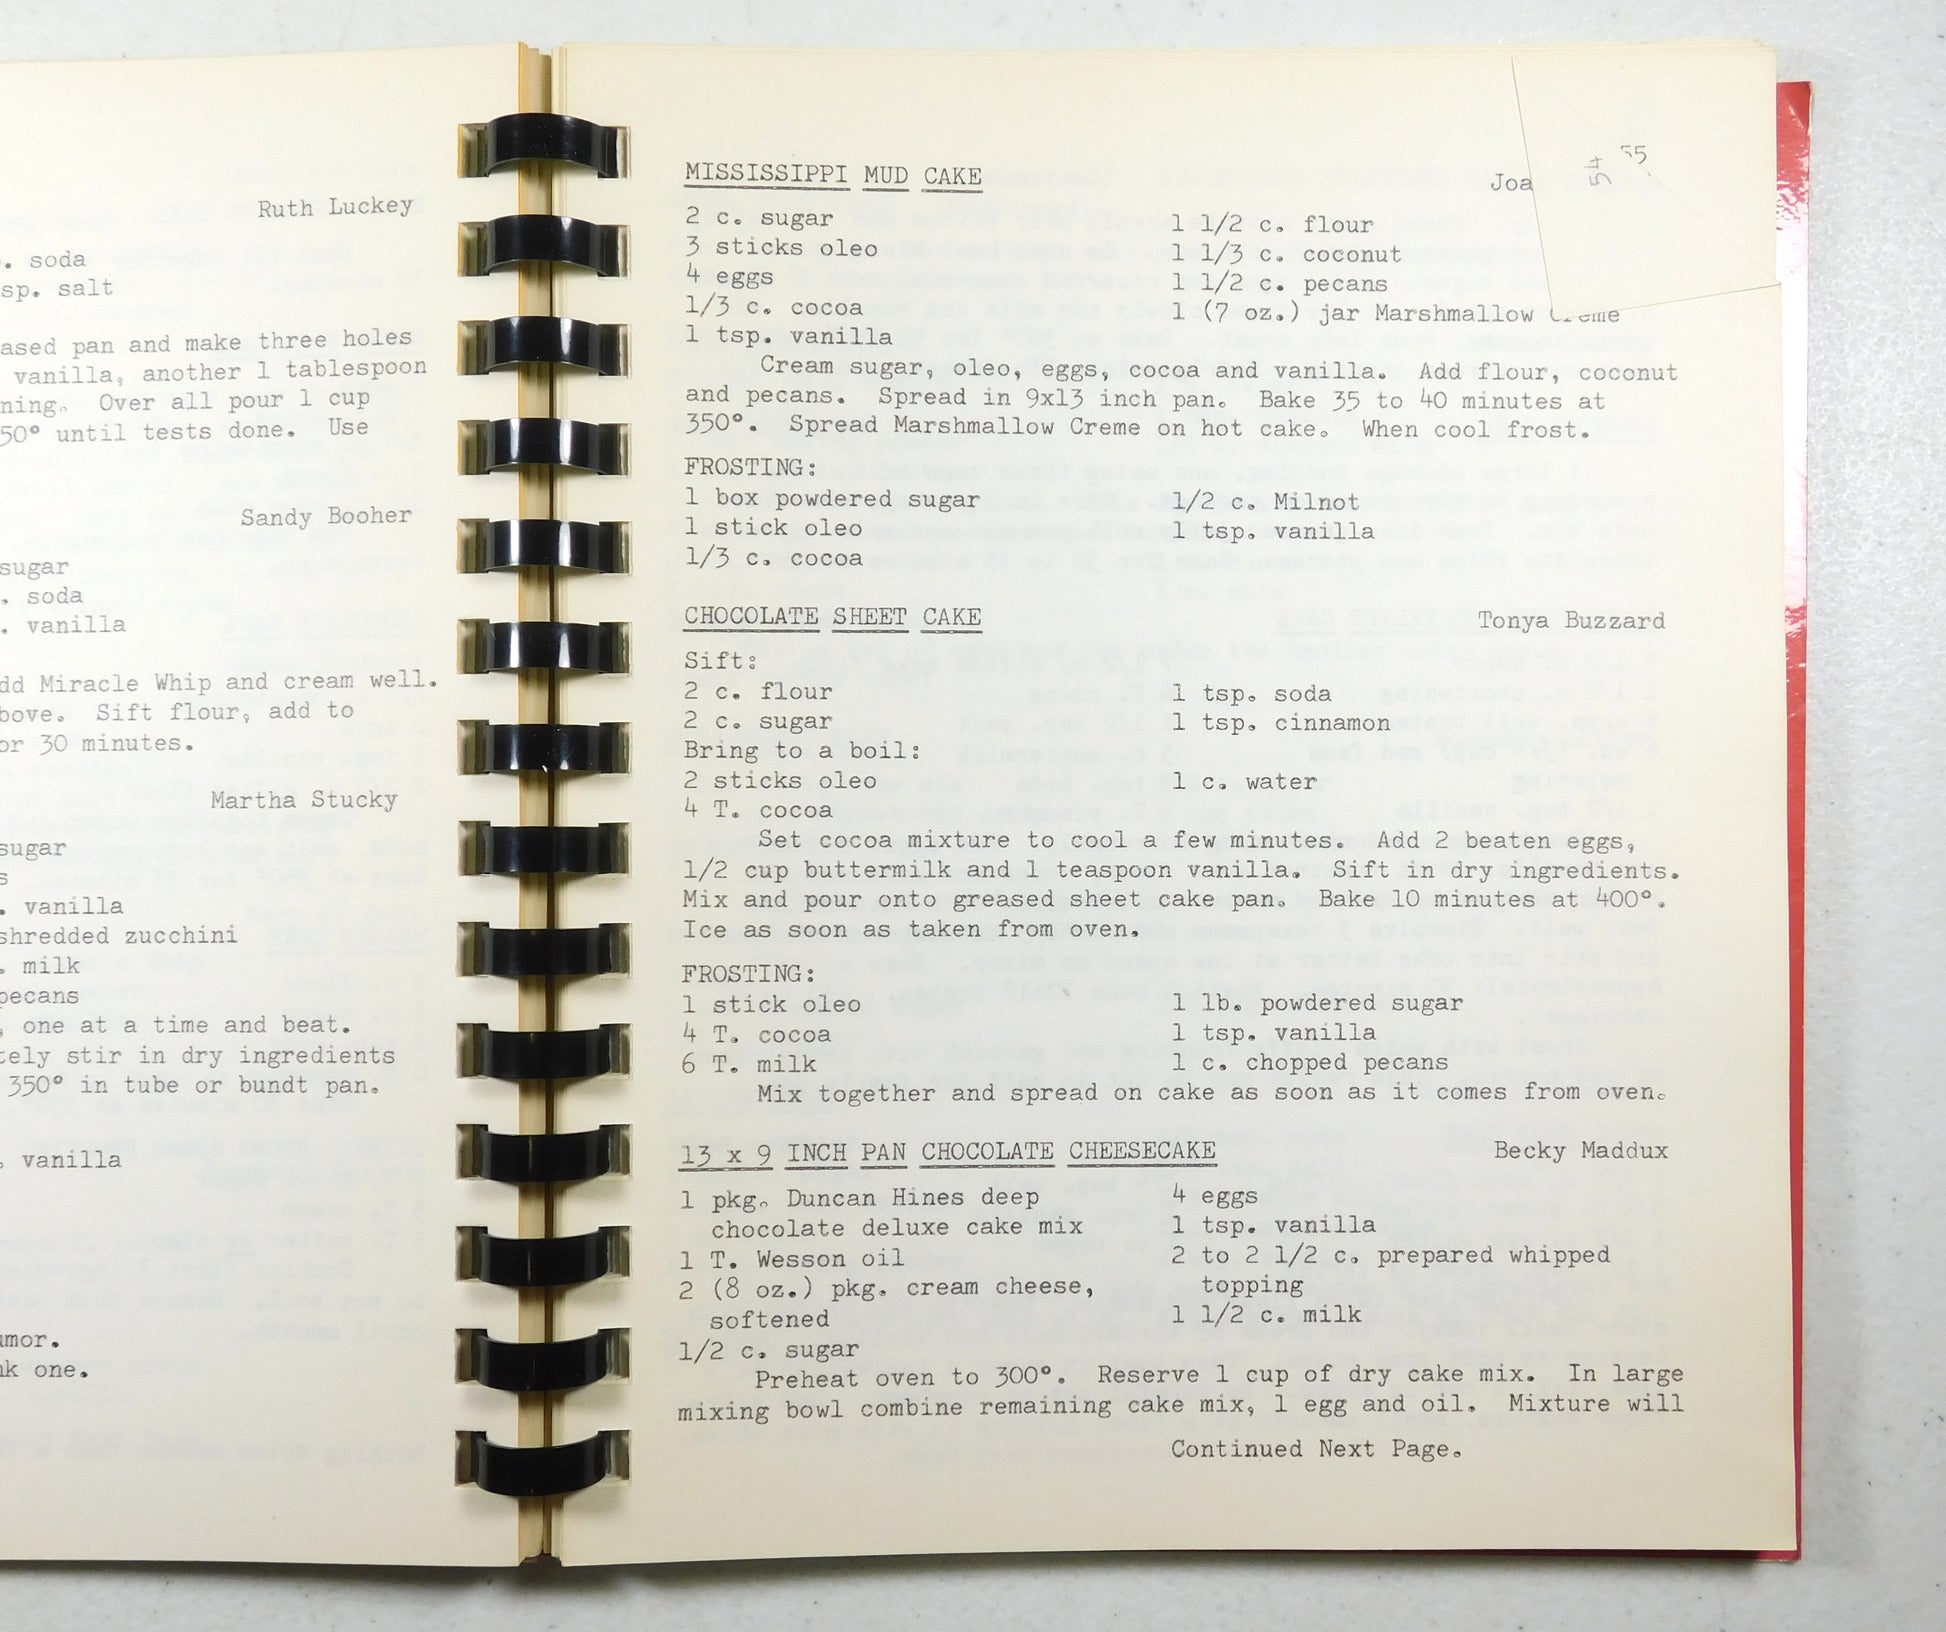 Ruth Luckey
. soda
sp. salt
ased pan and make three holes
vanilla, another 1 tablespoon
ning. Over all pour 1 cup
50° until tests done. Use
Sandy Booher
sugar
. soda
. vanilla
dd Miracle Whip and cream well.
bove. Sift flour, add to
or 30 minutes.
Martha Stucky
sugar
s
. vanilla
shredded zucchini
. milk
pecans
, one at a time and beat.
tely stir in dry ingredients
350° in tube or bundt pan.
. vanilla
umor.
nk one.
54 55
MISSISSIPPI MUD CAKE Joa
2 c. sugar 1 1/2 c. flour
3 sticks oleo 1 1/3 c. coconut
4 eggs 1 1/2 c. pecans
1/3 c. cocoa 1 (7 oz.) jar Marshmallow Creme
1 tsp. vanilla
Cream sugar, oleo, eggs, cocoa and vanilla. Add flour, coconut
and pecans. Spread in 9x13 inch pan. Bake 35 to 40 minutes at
350°. Spread Marshmallow Creme on hot cake. When cool frost.
FROSTING:
1 box powdered sugar 1/2 c. Milnot
1 stick oleo 1 tsp. vanilla
1/3 c. cocoa
CHOCOLATE SHEET CAKE Tonya Buzzard
Sift:
2 c. flour 1 tsp. soda
2 c. sugar 1 tsp. cinnamon
Bring to a boil:
2 sticks oleo 1 c. water
4 T. cocoa
Set cocoa mixture to cool a few minutes. Add 2 beaten eggs,
1/2 cup buttermilk and 1 teaspoon vanilla. Sift in dry ingredients.
Mix and pour onto greased sheet cake pan. Bake 10 minutes at 400°.
Ice as soon as taken from oven.
FROSTING:
1 stick oleo 1 lb. powdered sugar
4 T. cocoa 1 tsp. vanilla
6 T. milk 1 c. chopped pecans
Mix together and spread on cake as soon as it comes from oven.
13 x 9 INCH PAN CHOCOLATE CHEESECAKE Becky Maddux
1 pkg. Duncan Hines deep 4 eggs
chocolate deluxe cake mix 1 tsp. vanilla
1 T. Wesson oil 2 to 2 1/2 c. prepared whipped
2 (8 oz.) pkg. cream cheese, topping
softened 1 1/2 c. milk
1/2 c. sugar
Preheat oven to 300°. Reserve 1 cup of dry cake mix. In large
mixing bowl combine remaining cake mix, 1 egg and oil. Mixture will
Continued Next Page.